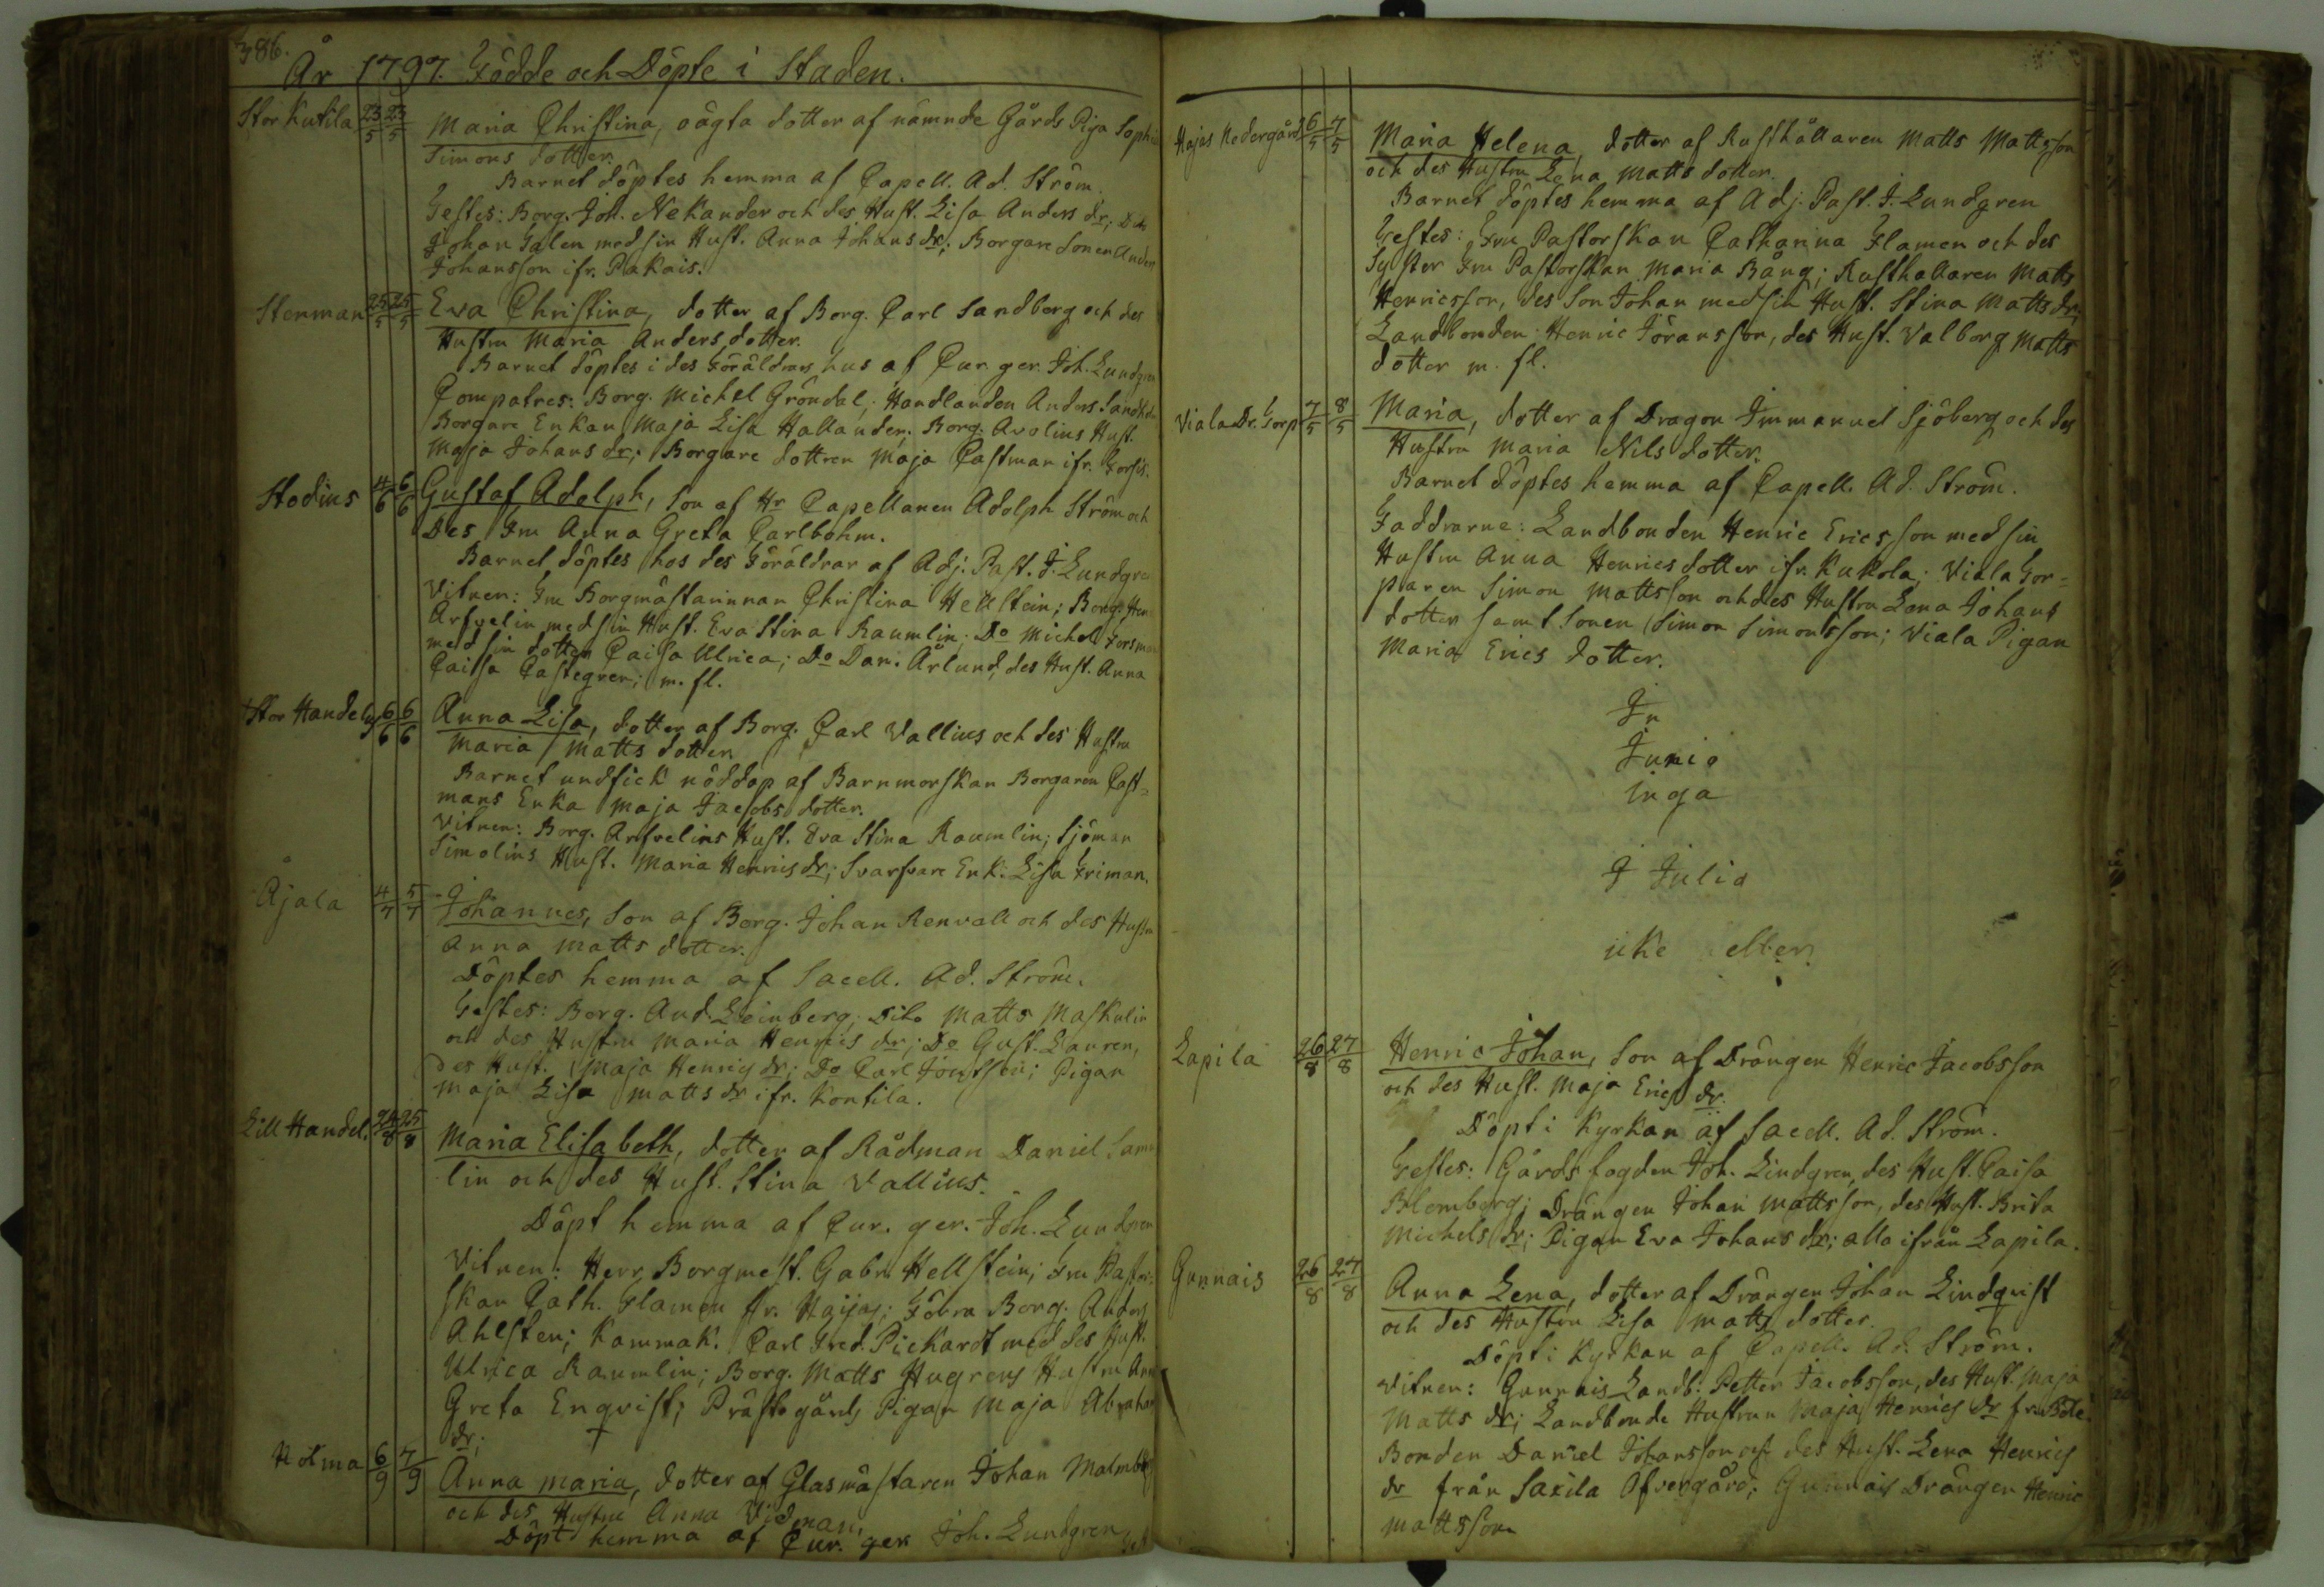 386.
År 1797. Födde och Döpte i Staden.
Stor Kutila 23/5 23/5 Maria Christina, oägta dotter af nämnde Gårds Piga Sophia
Simons dotter.
Barnet döptes hemma af Capell. Ad. Ström.
Testes: Borg. Joh. Nekander och des Hust. Lisa Anders dr; Dito
Johan Galen med sin Hust. Anna Johans dr; Borgare Sonen Anders
Johansson ifr. Pakais.
Stenman 25/5 25/5 Eva Christina, dotter af Borg. Carl Sandberg och des
Hustru Maria Anders dotter.
Barnet döptes i des föräldrars hus af Cur. ger. Joh. Lundgren
Compatres: Borg. Michel Gröndal; Handlanden Anders
Borgare Enkan Maja Lisa Hallander; Borg. Avolins Hust.
Maja Johans dr; Borgare dottren Maja Castman ifr. Forsis.
Stodius 4/6 6/6 Gustaf Adolph, Son af Hr Capellanen Adolph Ström och
Des Fru Anna Greta Carlbohm.
Barnet döptes hos des Föräldrar af Adj. Past. J. Lundgren
Vitnen: Fru Borgmästarinnan Christina Hellstein; Borg. Hen
Artvelin med sin Hust. Eva Stina Raumlin; Do Michel Forsman
med sin dotter Caisa Ulrica; Do Dan. Ärlund, des Hust. Anna
Caisa Castegren; m. fl.
Stor Handelus 6/6 6/6 Anna Lisa, dotter af Borg. Carl Vallius och des Hustru
Maria Matts dotter
Barnet undfick nöddop af Barnmorskan Borgaren Cast=
mans Enka Maja Jacobs dotter.
Vitnen: Borg. Artvelins Hust. Eva Stina Raumlin; Sjöman
Simolins Hust. Maria Henrics dr; Svarfvare Enk. Lisa Friman.
Äjälä 4/7 5/7 Johannes, Son af Borg. Johan Renvall och des Hustru
Anna Matts dotter.
Döptes hemma af Sacell. Ad. Ström.
Testes: Borg. And. Leinberg; Dito Matts Maskulin
och des Hustru Maria Henrics dr; Do Gust. Lauren,
des Hust. Maja Henrics dr; Do Carl; Pigan
Maja Lisa Matts dr ifr. Kontila.
Lill Handel. 24/8 25/8 Maria Elisabeth, dotter af Rådman Daniel Sam
lin och des Hust. Stina Vallius.
Döpt hemma af Cur. ger. Joh. Lundgren
Vitnen: Herr Borgmest. Gabr. Hellstein; Fru Pastor=
skan Cath. Flamen fr. Haijas; Förra Borg. Anders
Ahlsten; Kammak. Carl Fred. Pickardt med des Hust.
Ulrica Raumlin; Borg. Matts Hugrens Hustru Anna
Greta Enqvist; Prästegårds Pigan Maja Abraham
dr;
Holma 6/9 7/9 Anna Maria, dotter af Glasmästaren Johan Malmberg
och des Hustru Anna Vidman.
Döpt hemma af Cur. ger. Joh. Lundgren
Hajas Nedergård 6/5 7/5 Maria Helena, dotter af Rusthållaren Matts Mattsson
och des Hustru Lena Matts dotter.
Barnet döptes hemma af Adj. Past. J. Lundgren
Testes: Fru Pastorskan Catharina Flamen och des
Syster Fru Pastorskan Maria Bång; Rusthållaren Matts
Henricsson, des Son Johan med sin Hust. Stina Matts dr;
Landbonden Henric Göransson, des Hust. Valborg Matts
dotter m. fl.
Viala Dr. Torp 7/5 8/5 Maria, dotter af Dragon Immanuel Sjöberg och des
Hustru Maria Nils dotter.
Barnet döptes hemma af Capell. Ad. Ström.
Faddrarne: Landbonden Henric Ericsson med sin
Hustru Anna Henrics dotter ifr. Kukola; Viala Tor=
paren Simon Mattsson och des Hustru Lena Johans
dotter samt Sonen Simon Simonsson; Viala Pigan
Maria Erics dotter.
In
Junio
inga
I Julio
icke eller
Lapila 26/8 27/8 Henric Johan, Son af Drängen Henric Jacobsson
och des Hust. Maja Erics dr.
Döpt i Kyrkan af Sacell. Ad. Ström.
Testes: Gårdsfogden Joh. Lindgren, des Hust. Caisa
Blomberg; Drängen Johan Mattsson, des Hust. Brita
Michels dr; Pigan Eva Johans dr; alla ifrån Lapila.
Gunnais 26/8 27/8 Anna Lena, dotter af Drängen Johan Lindqvist
och des Hustru Lisa Matts dotter.
Döpt i Kyrkan af Capell. Ad. Ström.
Vitnen: Gunnais Landb. Petter Jacobsson, des Hust. Maja
Matts dr; Landbonde Hustrun Maja Henrics dr fr.
Bonden Daniel Johansson och des Hust. Lena Henrics
dr från Saxila Öfvergård; Gunnais Drängen Henric
Mattsson